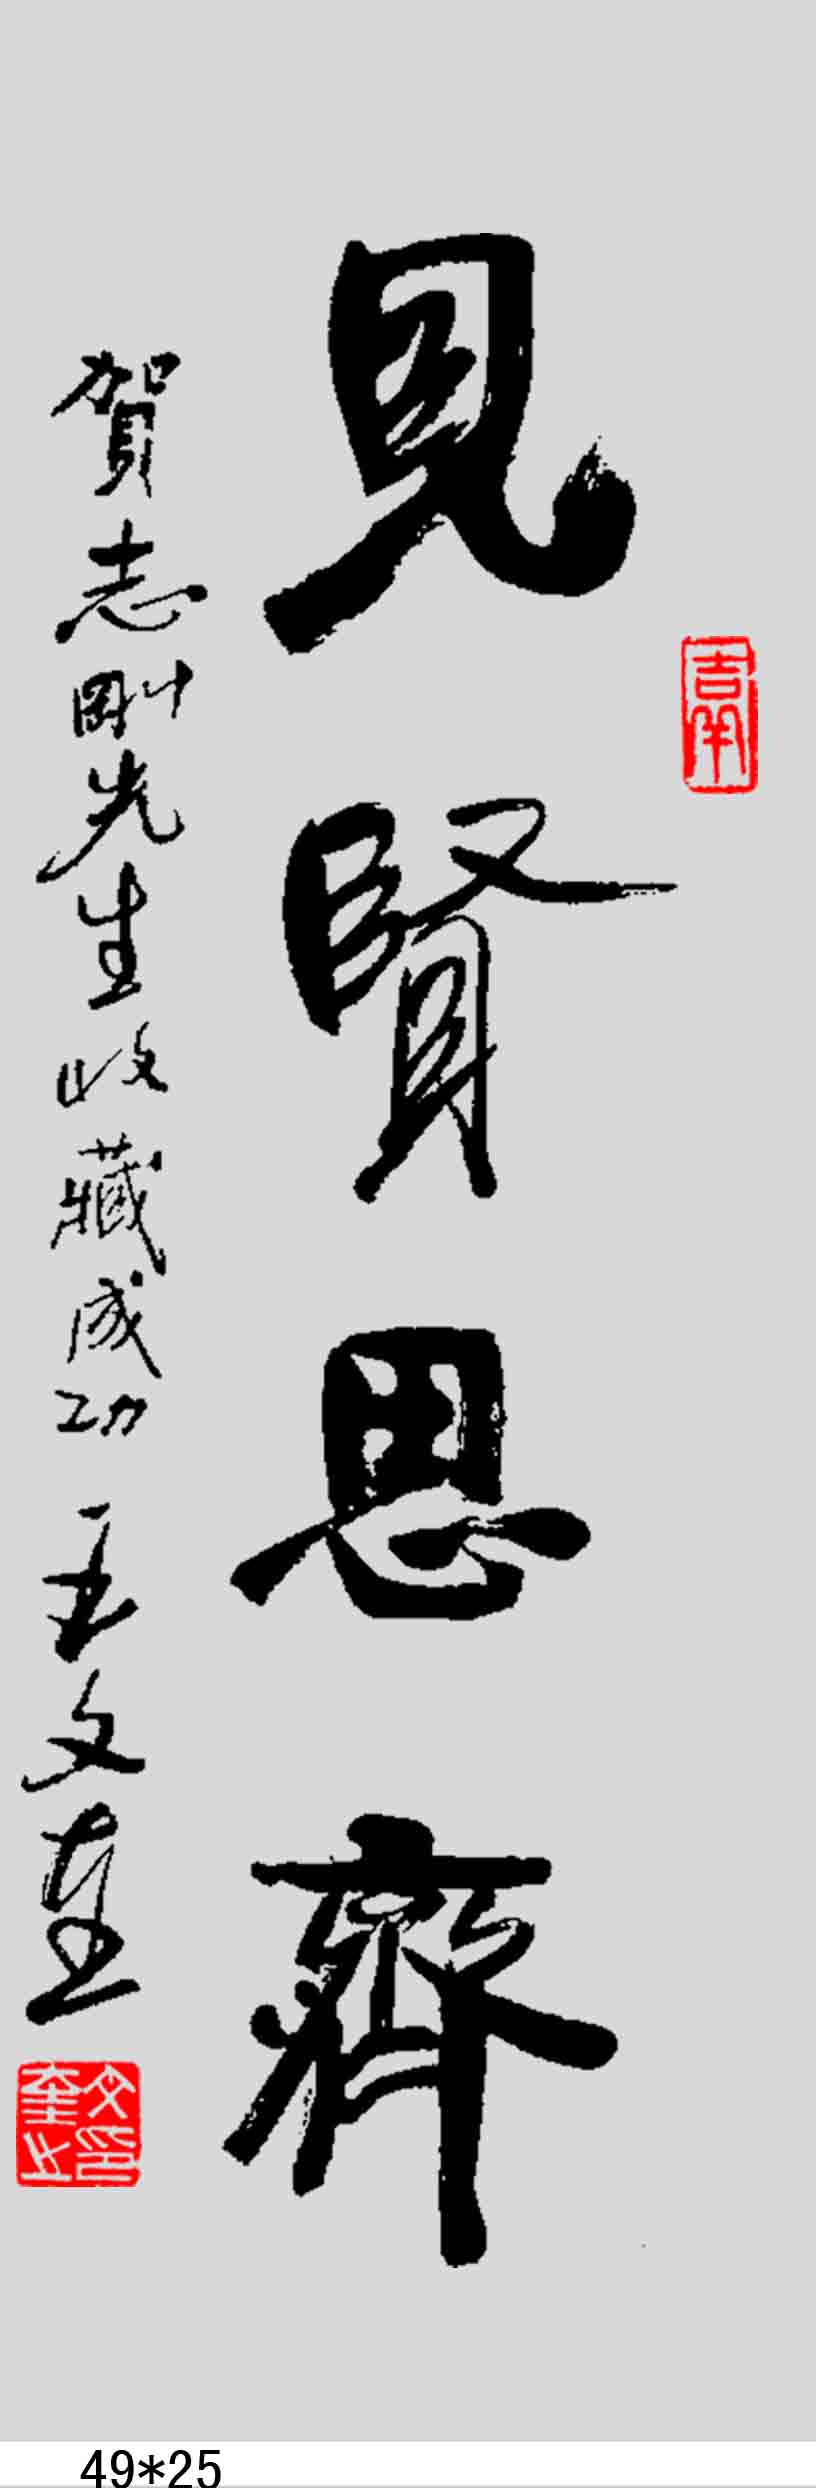 見賢思齊
賀志剛先生收藏成功 王文奎
文奎之印
49*25